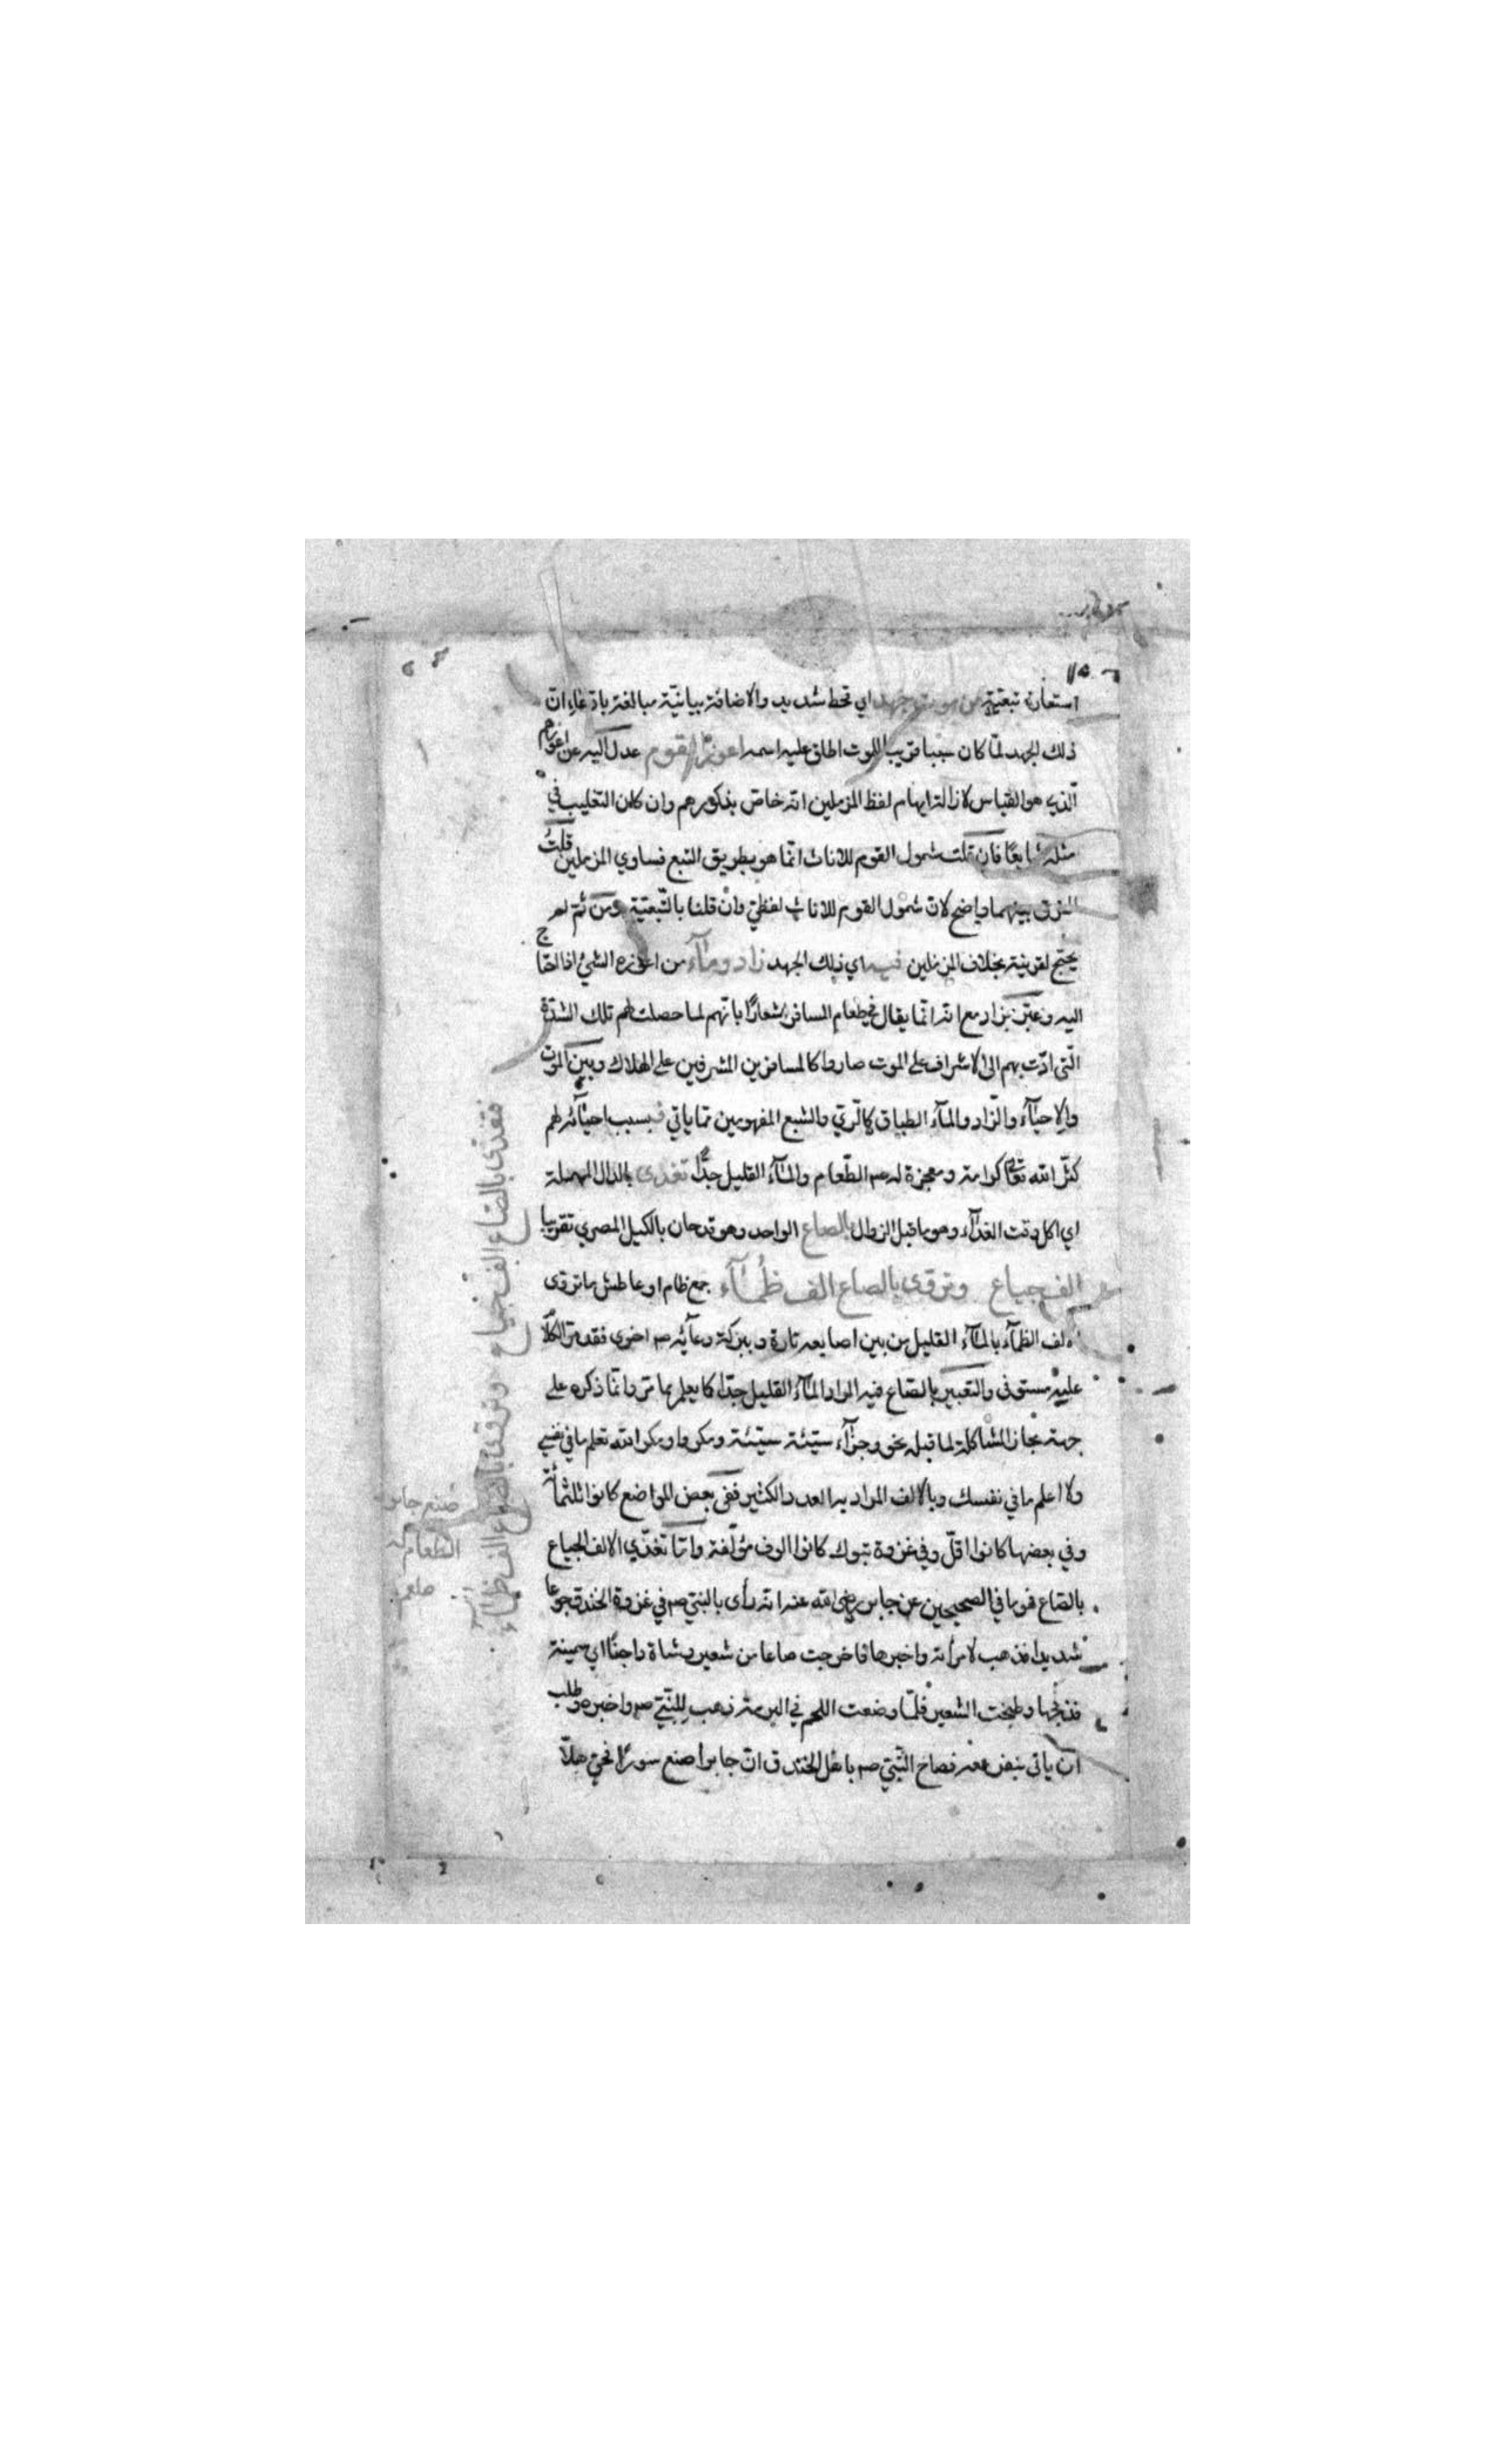 استعارة تبعيّة من موت جهد اي قحط شديد والاضافة بيانيّة مبالغة بادّعاء انّ
ذلك الجهد لمّا كان سببا قريبا للموت اطلق عليه اسمه اعوز القوم عدل اليه عن اعوزهم
الّذي هو القياس لازالة ايهام لفظ المزملين انه خاصّ بذكورهم وان كان التغليب في
مثله شايعًا فان قلت شمول القوم للاناث انّما هو بطريق التبع فساوي المزملين قلتُ
الفرق بينهما واضح لانّ شمول القوم للاناث لفظيّ وانْ قلنا بالتّبعيّة ومن ثم لم
يحتج لقرينة بخلاف المزملين فيه اي ذلك الجهد زاد وماآء من اعوزه الشيئ اذا احتاج
اليه وعبّر بزاد مع انه انّما يقال في طعام المسافر اشعارًا بانّهم لما حصلت لهم تلك الشدّة
الّتي ادّت بهم الى الاشراف على الموت صاروا كالمسافرين المشرفين على الهلاك وبين الموت
والاحيآء والزّاد والمآء الطباق كالرّيّ والشبع المفهومين ممّا ياتي فبسبب احيآئه لهم
كثّر الله تعا كرامة ومعجزة له صم الطّعام والمآء القليل جدًّا تغدى بالدال المهملة
اي اكل وقت الغدآء وهو ما قبل الزوال بالصاع الواحد وهو قدحان بالكيل المصري تقريبا
الف جياع وتروّى بالصاع الف ظُمآء جمع ظام او عاطش ما تروى
الف الظمآء بالمآء القليل من بين اصابعه تارة وببركة دعآئه صم اخرى فقد مرّ الكلام
عليه مستوفى والتعبير بالصّاع فيه المراد المآء القليل جدّا كما يعلم بما مرّ وانّما ذكره على
جهة مجاز المشاكلة لما قبله نحو وجزآء سيّئة سيّئة ومكروا ومكر الله تعلم ما في نفسي
ولا اعلم ما في نفسك وبالالف المراد به العدد الكثير ففي بعض المواضع كانوا ثلثمائة
وفي بعضها كانوا اقلّ وفي غزوة تبوك كانوا الوف مؤلّفة وامّا تغدّي الالف الجياع
بالصّاع فهو ما في الصحيحين عن جابر رضي الله عنه انه رأى بالنبيّ صم في غزوة الخندق جوعًا
شديدا فذهب لامرأته واخبرها فاخرجت صاعا من شعير وشاة داجنًا اي سمينة
فذبحها وطبخت الشعير فلمّا وضعت اللحم في البرمة ذهب للنّبيّ صم واخبره وطلب
ان ياتي بنفر معه فصاح النّبيّ صم يا اهل الخندق انّ جابرا صنع سورًا فحيّ هلّا
فتغدى بالصّاع الف جياع وتروّى بالصاع الف ظمآء
صنع جابر
الطعام له
صلعم